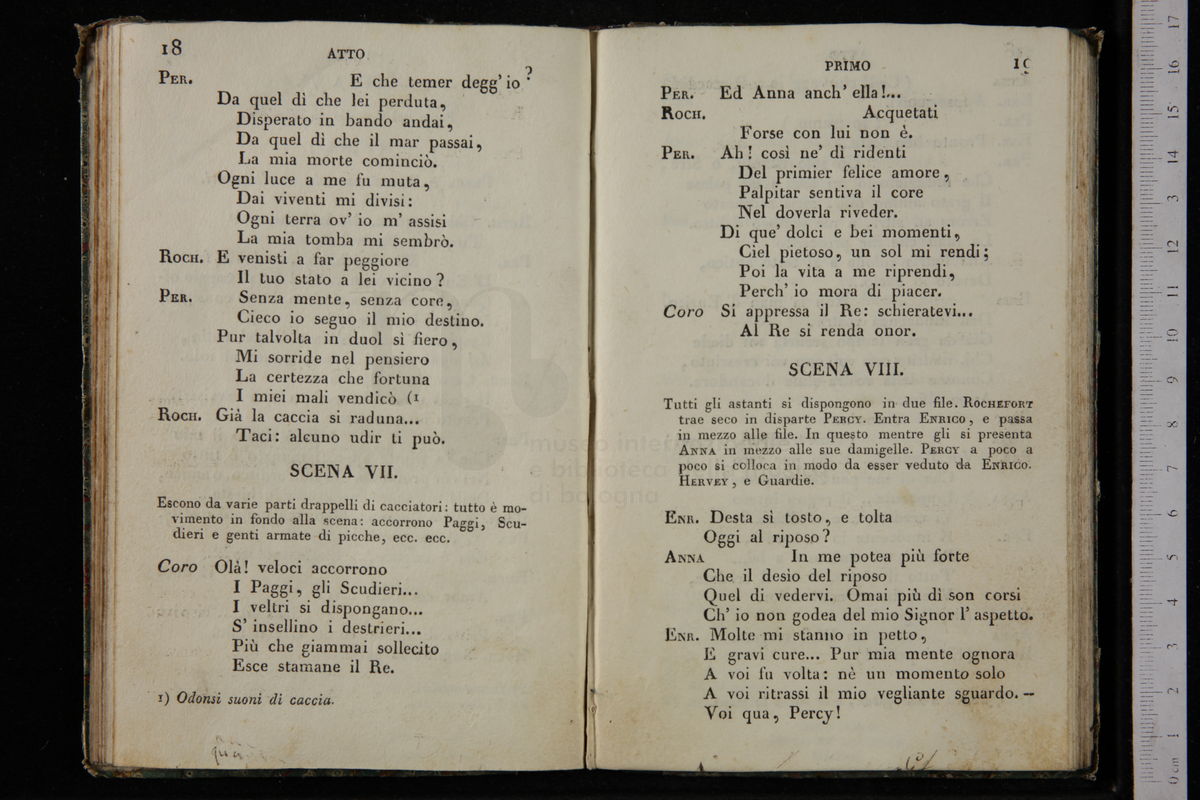 18
ATTO
PER. E che temer degg' io?
Da quel dì che lei perduta,
Disperato in bando andai,
Da quel dì che il mar passai,
La mia morte cominciò.
Ogni luce a me fu muta,
Dai viventi mi divisi:
Ogni terra ov' io m' assisi
La mia tomba mi sembrò.
ROCH. E venisti a far peggiore
Il tuo stato a lei vicino?
PER. Senza mente, senza core,
Cieco io seguo il mio destino.
Pur talvolta in duol sì fiero,
Mi sorride nel pensiero
La certezza che fortuna
I miei mali vendicò (1
ROCH. Già la caccia si raduna...
Taci: alcuno udir ti può.
SCENA VII.
Escono da varie parti drappelli di cacciatori: tutto è mo-
vimento in fondo alla scena: accorrono Paggi, Scu-
dieri e genti armate di picche, ecc. ecc.
Coro Olà! veloci accorrono
I Paggi, gli Scudieri...
I veltri si dispongano...
S' insellino i destrieri...
Più che giammai sollecito
Esce stamane il Re.
1) Odonsi suoni di caccia.
PRIMO
PER. Ed Anna anch' ella!...
ROCH. Acquetati
Forse con lui non è.
PER. Ah! così ne' dì ridenti
Del primier felice amore,
Palpitar sentiva il core
Nel doverla riveder.
Di que' dolci e bei momenti,
Ciel pietoso, un sol mi rendi;
Poi la vita a me riprendi,
Perch' io mora di piacer.
Coro Si appressa il Re: schieratevi...
Al Re si renda onor.
SCENA VIII.
Tutti gli astanti si dispongono in due file. ROCHEFORT
trae seco in disparte PERCY. Entra ENRICO, e passa
in mezzo alle file. In questo mentre gli si presenta
ANNA in mezzo alle sue damigelle. PERCY a poco a
poco si colloca in modo da esser veduto da ENRICO.
HERVEY, e Guardie.
ENR. Desta sì tosto, e tolta
Oggi al riposo?
ANNA In me potea più forte
Che il desio del riposo
Quel di vedervi. Omai più dì son corsi
Ch' io non godea del mio Signor l' aspetto.
ENR. Molte mi stanno in petto,
E gravi cure... Pur mia mente ognora
A voi fu volta: nè un momento solo
A voi ritrassi il mio vegliante sguardo. —
Voi qua, Percy!
museo inte
e biblioteca
di bologna
0 cm 1 2 3 4 5 6 7 8 9 10 11 12 13 14 15 16 17